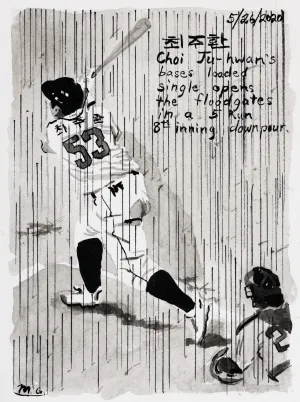 5/26/2020
최주환
Choi Ju-hwan's
bases loaded
single opens
the floodgates
in a 5 run
8th inning downpour.
최주환
53
2
M.G.